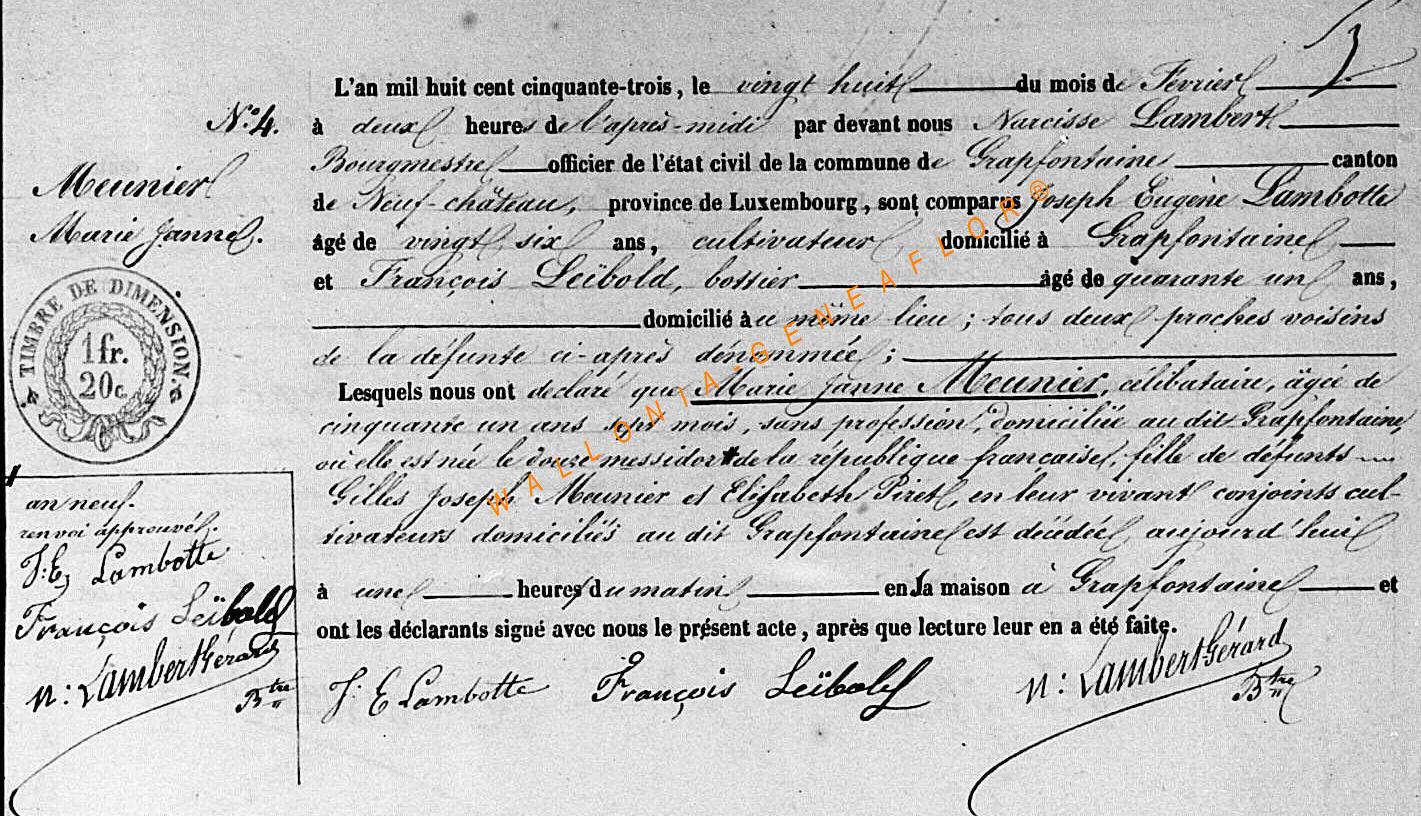 3
L'an mil huit cent cinquante-trois, le vingt huit du mois de Février
N.° 4.
à deux heures de l'après-midi par devant nous Narcisse Lambert
Bourgmestre officier de l'état civil de la commune de Grapfontaine canton
Meunier
de Neuf-château, province de Luxembourg, sont comparus Joseph Eugène Lambotte
Marie Janne.
âgé de vingt six ans, cultivateur domicilié à Grapfontaine
et François Leïbold, bottier âgé de quarante un ans,
TIMBRE DE DIMENSION.
1 fr.
20 c.
domicilié au même lieu ; tous deux proches voisins
de la défunte ci-après dénommée ;
Lesquels nous ont déclaré que Marie Janne Meunier, célibataire, âgée de
cinquante un ans sept mois, sans profession, domiciliée au dit Grapfontaine,
où elle est née le douze messidor # de la république française, fille de défunts
Gilles Joseph Meunier et Elisabeth Piret, en leur vivant conjoints cul-
tivateurs domiciliés au dit Grapfontaine est décédée aujourd'hui
à une heure du matin en la maison à Grapfontaine et
ont les déclarants signé avec nous le présent acte, après que lecture leur en a été faite.
# an neuf.
renvoi approuvé.
J: E Lambotte
François Leïbold
N: Lambert Gérard
Btre
J: E Lambotte François Leïbold N: Lambert Gérard
Btre
WALLONIA-GENEAFLOR®